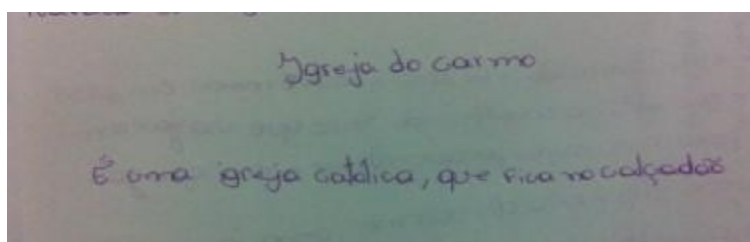 Igreja do carmo
É uma igreja católica, que fica no calçadão